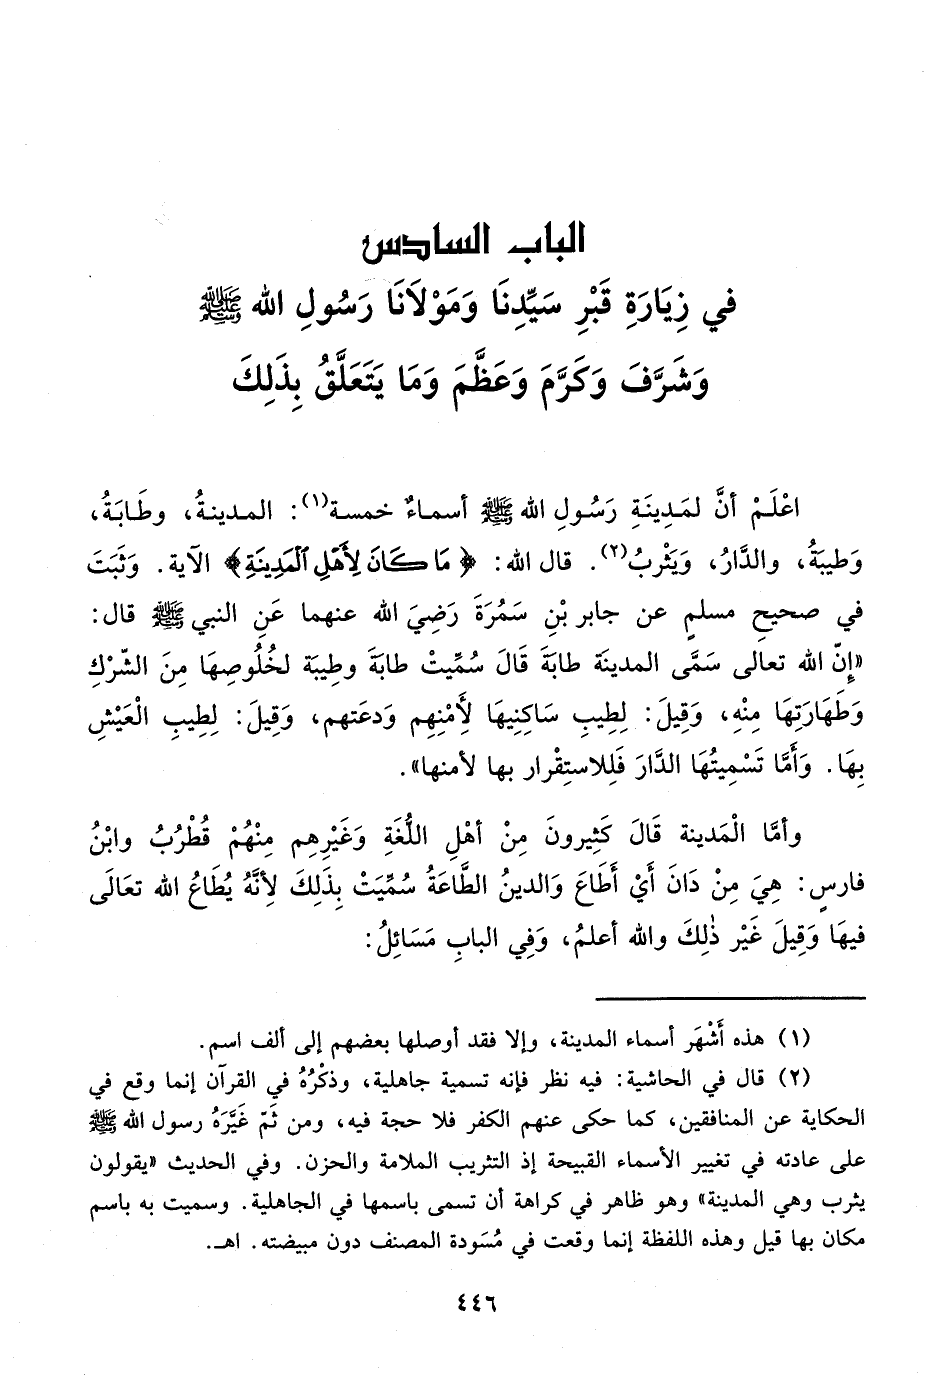 الباب السادس
في زِيَارَةِ قَبْرِ سَيِّدِنَا وَمَوْلَانَا رَسُولِ الله ﷺ
وَشَرَّفَ وَكَرَّمَ وَعَظَّمَ وَمَا يَتَعَلَّقُ بِذَلِكَ
اعْلَمْ أنَّ لمَدِينَةِ رَسُولِ الله ﷺ أسماءٌ خمسة(١): المدينةُ، وطَابَةُ،
وَطيبَةُ، والدَّارُ، وَيَثْربُ(٢). قال الله: ﴿مَا كَانَ لِأَهْلِ ٱلْمَدِينَةِ﴾ الآية. وَثَبَتَ
في صحيحِ مسلمٍ عن جابر بْنِ سَمُرَةَ رَضِيَ الله عنهما عَنِ النبي ﷺ قال:
«إنّ الله تعالى سَمَّى المدينَة طابَةَ قَالَ سُمِّيَتْ طابَةَ وطيبة لخُلُوصِهَا مِنَ الشّرْكِ
وَطَهَارَتِهَا مِنْهِ، وَقيلَ: لِطِيبِ سَاكِنِيهَا لِأَمْنِهِم وَدعَتهم، وَقِيلَ: لِطِيبِ الْعَيْشِ
بِهَا. وَأَمَّا تَسْمِيتُهَا الدَّارَ فَلِلاستِقْرار بها لأمنها».
وأمَّا الْمَدينة قَالَ كَثِيرونَ مِنْ أهْلِ اللُّغَةِ وَغَيْرِهِم مِنْهُمْ قُطْرُبُ وابْنُ
فارسٍ: هِيَ مِنْ دَانَ أَيْ أَطَاعَ وَالدينُ الطَّاعَةُ سُمِّيَتْ بِذَلِكَ لِأَنَّهُ يُطَاعُ الله تعَالَى
فيهَا وَقِيلَ غَيْر ذٰلِكَ والله أعلمُ، وَفِي البابِ مَسَائِلُ:
(١) هذه أَشْهَر أسماء المدينة، وإلا فقد أوصلها بعضهم إلى ألف اسم.
(٢) قال في الحاشية: فيه نظر فإنه تسمية جاهلية، وذكْرُهُ في القرآن إنما وقع في
الحكاية عن المنافقين، كما حكى عنهم الكفر فلا حجة فيه، ومن ثَمّ غَيَّرَهُ رسول الله ﷺ
على عادته في تغيير الأسماء القبيحة إذ التثريب الملامة والحزن. وفي الحديث «يقولون
يثرب وهي المدينة» وهو ظاهر في كراهة أن تسمى باسمها في الجاهلية. وسميت به باسم
مكان بها قيل وهذه اللفظة إنما وقعت في مُسَودة المصنف دون مبيضته. اهـ.
٤٤٦